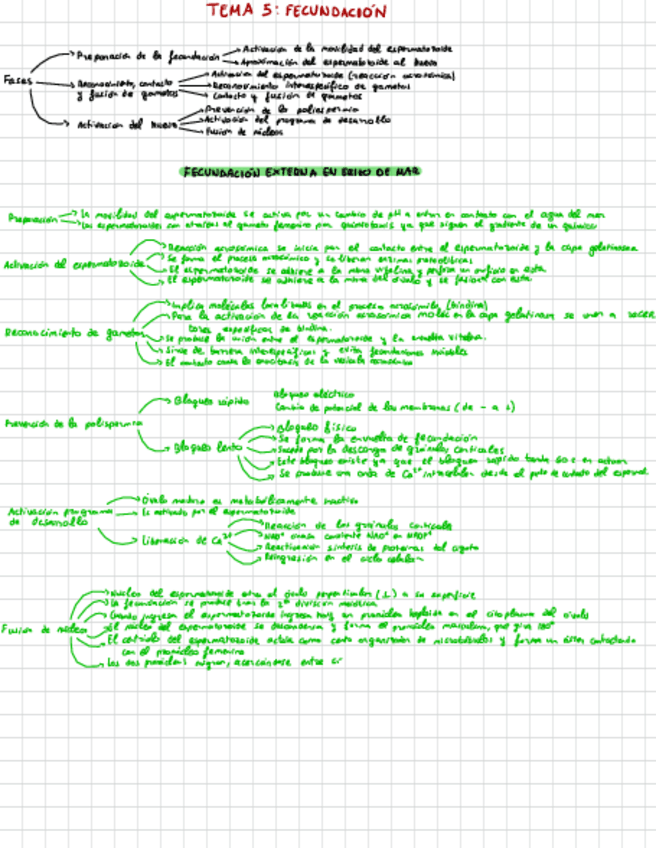 TEMA 5: FECUNDACIÓN
Fases
Preparación de la fecundación
Activación de la movilidad del espermatozoide
Aproximación del espermatozoide al huevo
Reconocimiento, contacto
y fusión de gametos
Activación del espermatozoide (reacción acrosómica)
Reconocimiento interespecífico de gametos
Contacto y fusión de gametos
Activación del huevo
Prevención de la poliespermia
Activación del programa de desarrollo
Fusión de núcleos
FECUNDACIÓN EXTERNA EN ERIZO DE MAR
Preparación
La movilidad del espermatozoide se activa por un cambio de pH al entrar en contacto con el agua del mar
Los espermatozoides son atraídos al gameto femenino por quimiotaxis ya que siguen el gradiente de un químico
Activación del espermatozoide
Reacción acrosómica se inicia por el contacto entre el espermatozoide y la capa gelatinosa
Se forma el proceso acrosómico y se liberan enzimas proteolíticas
El espermatozoide se adhiere a la mbna vitelina y perfora un orificio en esta
El espermatozoide se adhiere a la mbna del óvulo y se fusiona con esta
Reconocimiento de gametos
Implica moléculas localizadas en el proceso acrosómico (bindina)
Para la activación de la reacción acrosómica moléc en la capa gelatinosa se unen a
específicos de bindina.
Se produce la unión entre el espermatozoide y la envuelta vitelina.
Sirve de barrera interespecífica y evita fecundaciones inviables
El contacto causa la exocitosis de la vesícula acrosómica
Prevención de la polispermia
Bloqueo rápido
Bloqueo eléctrico
Cambio de potencial de las membranas (de - a +)
Bloqueo lento
Bloqueo físico
Se forma la envuelta de fecundación
Sucede por la descarga de gránulos corticales
Este bloqueo existe ya que el bloqueo rápido tarda 60 s en actuar
Se produce una onda de Ca²⁺ intracelular desde el pto de contacto del espermat.
Activación programa
de desarrollo
Óvulo maduro es metabólicamente inactivo
Es activado por el espermatozoide
Liberación de Ca²⁺
Reacción de los gránulos corticales
NAD⁺ cinasa convierte NAD⁺ en NADP⁺
Reactivación síntesis de proteínas del cigoto
Reingresión en el ciclo celular
Fusión de núcleos
Núcleo del espermatozoide entra al óvulo perpendicular (⊥) a su superficie
La fecundación se produce tras la 2ª división meiótica
Cuando ingresa el espermatozoide ingresa hay un pronúcleo haploide en el citoplasma del óvulo
El núcleo del espermatozoide se descondensa y forma el pronúcleo masculino, que gira 180°
El centriolo del espermatozoide actúa como centro organizador de microtúbulos y forma un áster contactando
con el pronúcleo femenino
Los dos pronúcleos migran, acercándose entre sí